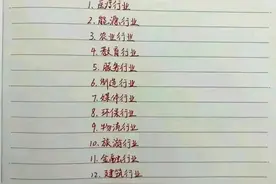 1. 医疗行业
2. 能源行业
3. 农业行业
4. 教育行业
5. 服务行业
6. 制造行业
7. 媒体行业
8. 环保行业
9. 物流行业
10. 旅游行业
11. 金融行业
12. 建筑行业